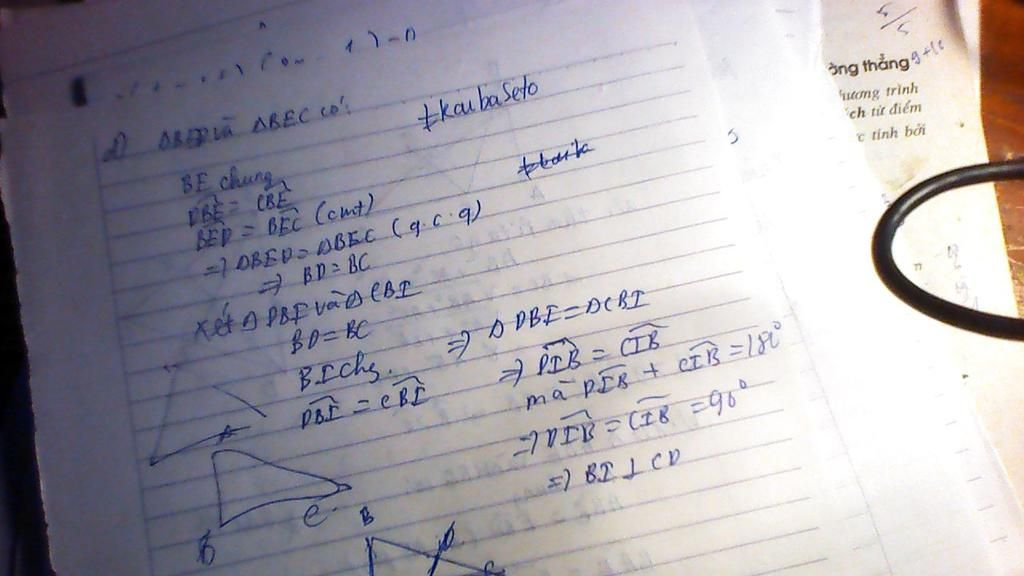 d) ΔBED và ΔBEC có:
#KaibaSeto
BE chung
DBE^ = CBE^
BED^ = BEC^ (cmt)
=> ΔBED = ΔBEC (g.c.g)
=> BD = BC
Xét Δ DBI và Δ CBI
BD = BC
BI chg.
DBI^ = CBI^
=> Δ DBI = Δ CBI
=> DIB^ = CIB^
mà DIB^ + CIB^ = 180°
=> DIB^ = CIB^ = 90°
=> BI ⊥ CD
A
B
C
B
D
C
5/5
ờng thẳng
hương trình
ích từ điểm
c tính bởi